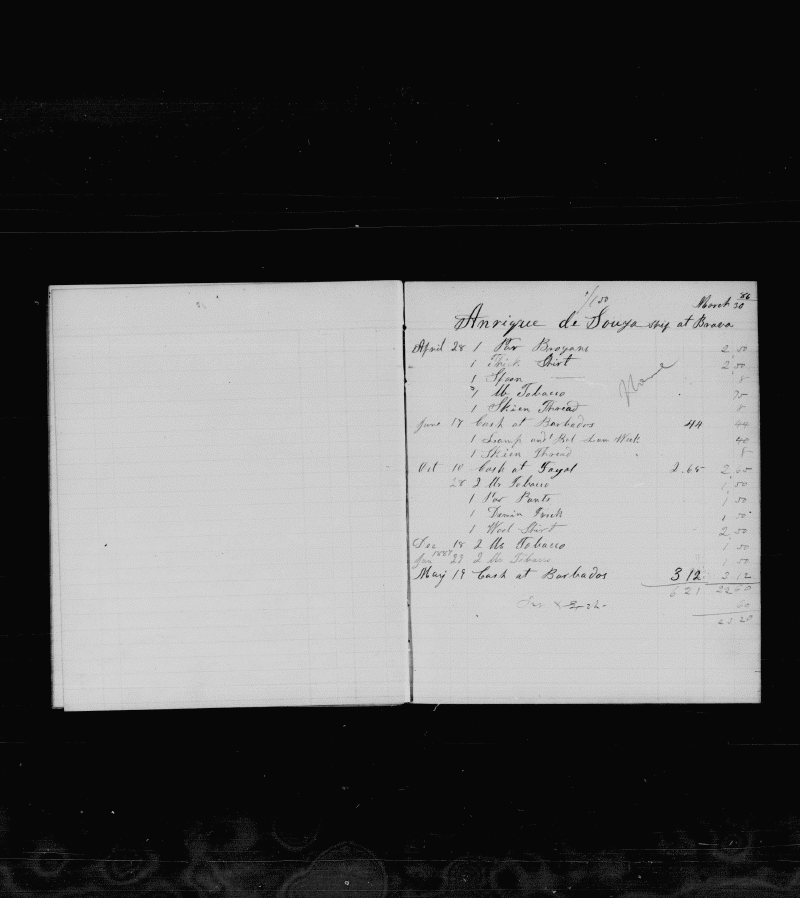 1/150
March 30 86
Anrique de Souza ship at Brava
April 28 1 Par Brogans 2,50
1 Thick Shirt 2,50
1 Spoon 8
1 lb Tobacco 75
1 Skien Thread 8
June 17 Cash at Barbados 44 44
1 Lamp and Bal Lam Wick 40
1 Skien Thread 8
Oct 10 Cash at Fayal 2.65 2,65
28 2 lbs Tobacco 1,50
1 Par Pants 1,50
1 Denim Frock 1,50
1 Wool Shirt 2,50
Dec 18 2 lbs Tobacco 1 50
Jan 1887 23 2 lbs Tobacco 1 50
May 19 Cash at Barbados 3 12 3 12
6 21 22 60
60
23 20